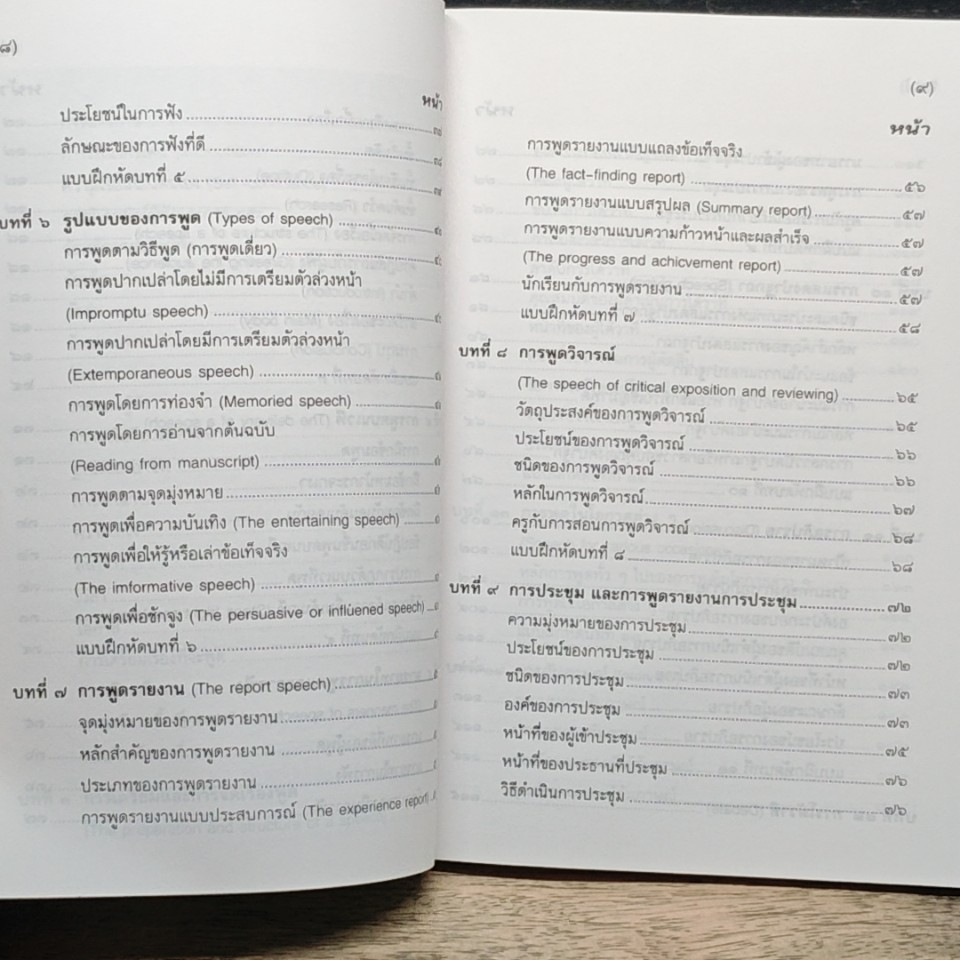 ๘)
หน้า
ประโยชน์ในการฟัง
ลักษณะของการฟังที่ดี
แบบฝึกหัดบทที่ ๕
บทที่ ๖ รูปแบบของการพูด (Types of speech)
การพูดตามวิธีพูด (การพูดเดี่ยว)
การพูดปากเปล่าโดยไม่มีการเตรียมตัวล่วงหน้า
(Impromptu speech)
การพูดปากเปล่าโดยมีการเตรียมตัวล่วงหน้า
(Extemporaneous speech)
การพูดโดยการท่องจำ (Memoried speech)
การพูดโดยการอ่านจากต้นฉบับ
(Reading from manuscript)
การพูดตามจุดมุ่งหมาย
การพูดเพื่อความบันเทิง (The entertaining speech)
การพูดเพื่อให้รู้หรือเล่าข้อเท็จจริง
(The imformative speech)
การพูดเพื่อชักจูง (The persuasive or influened speech)
แบบฝึกหัดบทที่ ๖
บทที่ ๗ การพูดรายงาน (The report speech)
จุดมุ่งหมายของการพูดรายงาน
หลักสำคัญของการพูดรายงาน
ประเภทของการพูดรายงาน
การพูดรายงานแบบประสบการณ์ (The experience report)
(๙)
หน้า
การพูดรายงานแบบแถลงข้อเท็จจริง
(The fact-finding report) ๕๖
การพูดรายงานแบบสรุปผล (Summary report) ๕๗
การพูดรายงานแบบความก้าวหน้าและผลสำเร็จ ๕๗
(The progress and achicvement report) ๕๗
นักเรียนกับการพูดรายงาน ๕๗
แบบฝึกหัดบทที่ ๗ ๕๘
บทที่ ๘ การพูดวิจารณ์
(The speech of critical exposition and reviewing) ๖๕
วัตถุประสงค์ของการพูดวิจารณ์ ๖๕
ประโยชน์ของการพูดวิจารณ์ ๖๖
ชนิดของการพูดวิจารณ์ ๖๖
หลักในการพูดวิจารณ์ ๖๗
ครูกับการสอนการพูดวิจารณ์ ๖๘
แบบฝึกหัดบทที่ ๘ ๖๘
บทที่ ๙ การประชุม และการพูดรายงานการประชุม ๗๒
ความมุ่งหมายของการประชุม ๗๒
ประโยชน์ของการประชุม ๗๒
ชนิดของการประชุม ๗๓
องค์ของการประชุม ๗๓
หน้าที่ของผู้เข้าประชุม ๗๕
หน้าที่ของประธานที่ประชุม ๗๖
วิธีดำเนินการประชุม ๗๖